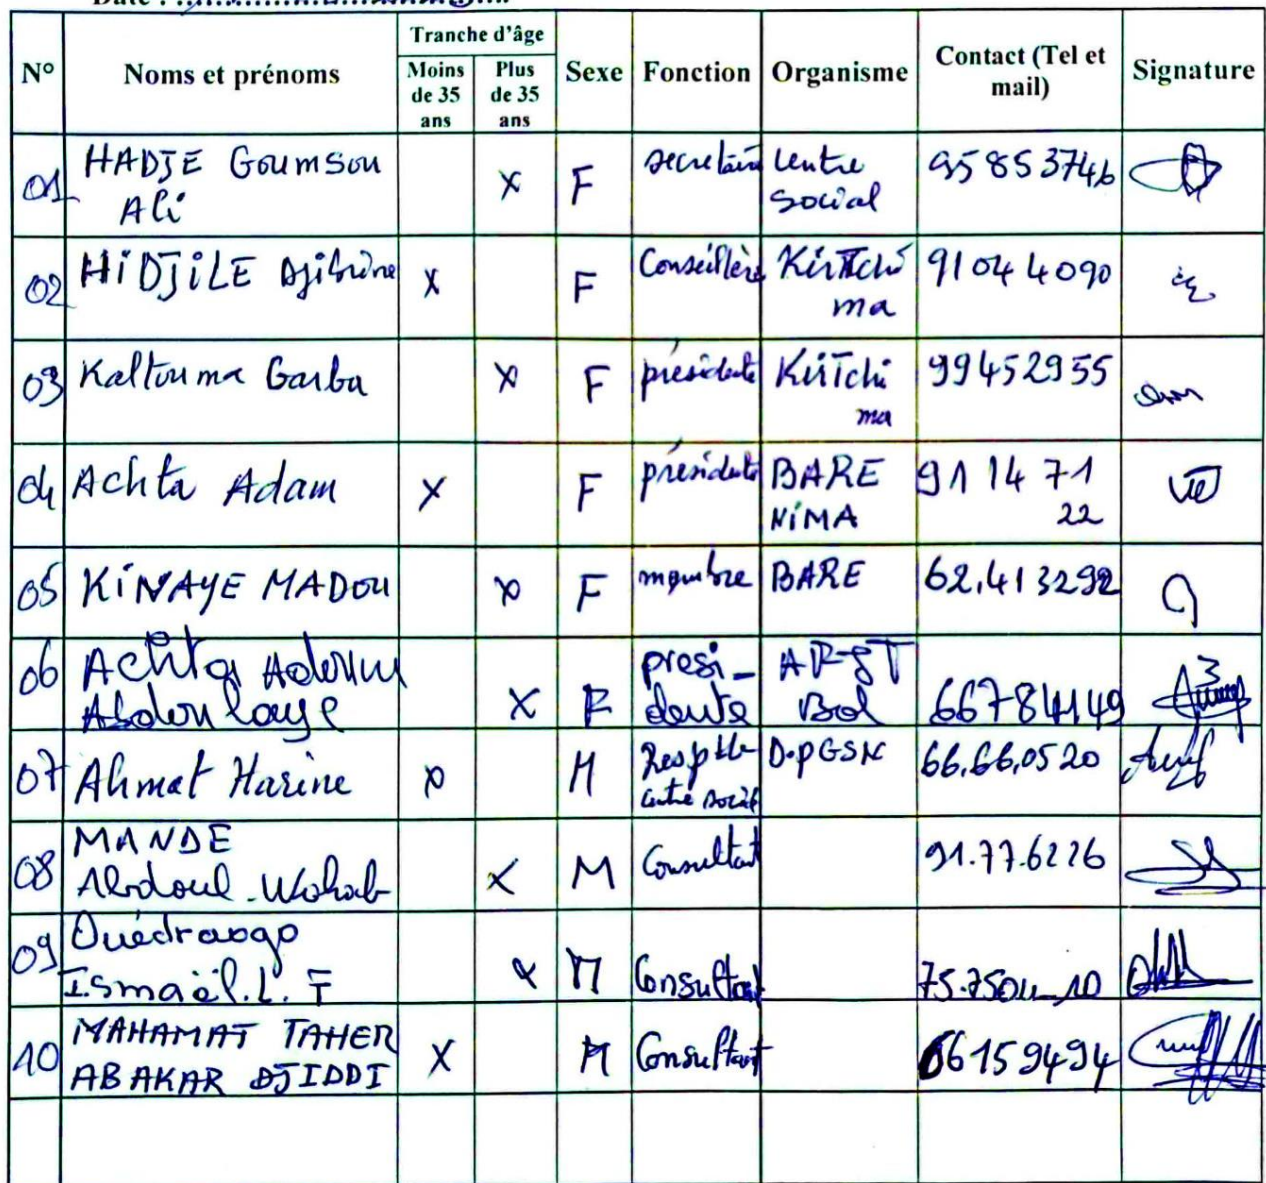 Date :
N° Noms et prénoms Tranche d'âge Sexe Fonction Organisme Contact (Tel et mail) Signature
Moins de 35 ans Plus de 35 ans
01 HADJE Goumsou Ali x F secretaire Centre Social 95853746
02 HIDJILE Djibrine x F Conseillère Kiritchi ma 91044090
03 Kaltouma Garba x F présidente Kiritchi ma 99452955
04 Achta Adam x F présidente BARE NIMA 91 14 71 22
05 KINAYE MADOU x F membre BARE 62.413292
06 Achta Adoum Abdoulaye x F presi- dente Bol 66784149
07 Ahmat Harine x M centre social 66.66.0520
08 MANDE Abdoul-Wahab x M Consultant 91.77.6226
09 Ouédraogo Ismaël.L. F x M Consultant
10 MAHAMAT TAHER ABAKAR DJIDDI x M Consultant 66159494